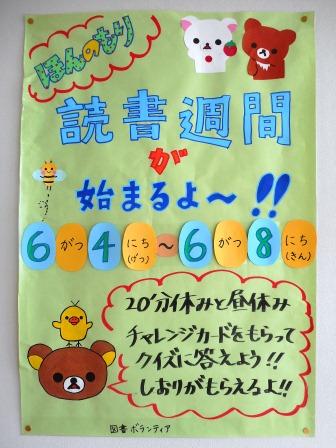 ほんのもり
読書週間
が
始まるよ～!!
6がつ4にち(げつ)～6がつ8にち(きん)
20分休みと昼休み
チャレンジカードをもらって
クイズに答えよう!!
しおりがもらえるよ!!
図書ボランティア